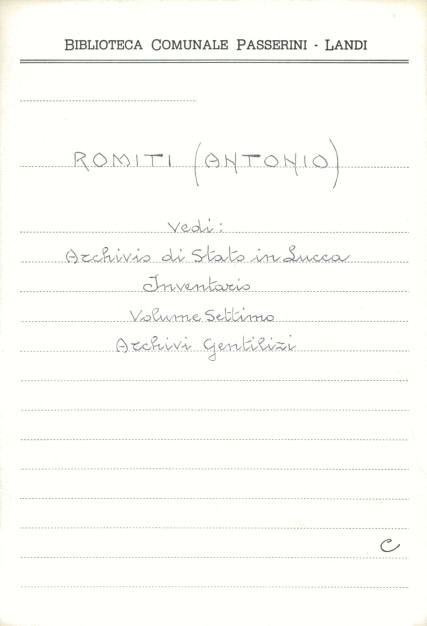 BIBLIOTECA COMUNALE PASSERINI - LANDI
ROMITI (ANTONIO)
Vedi:
Archivio di Stato in Lucca
Inventario
Volume Settimo
Archivi Gentilizi
C